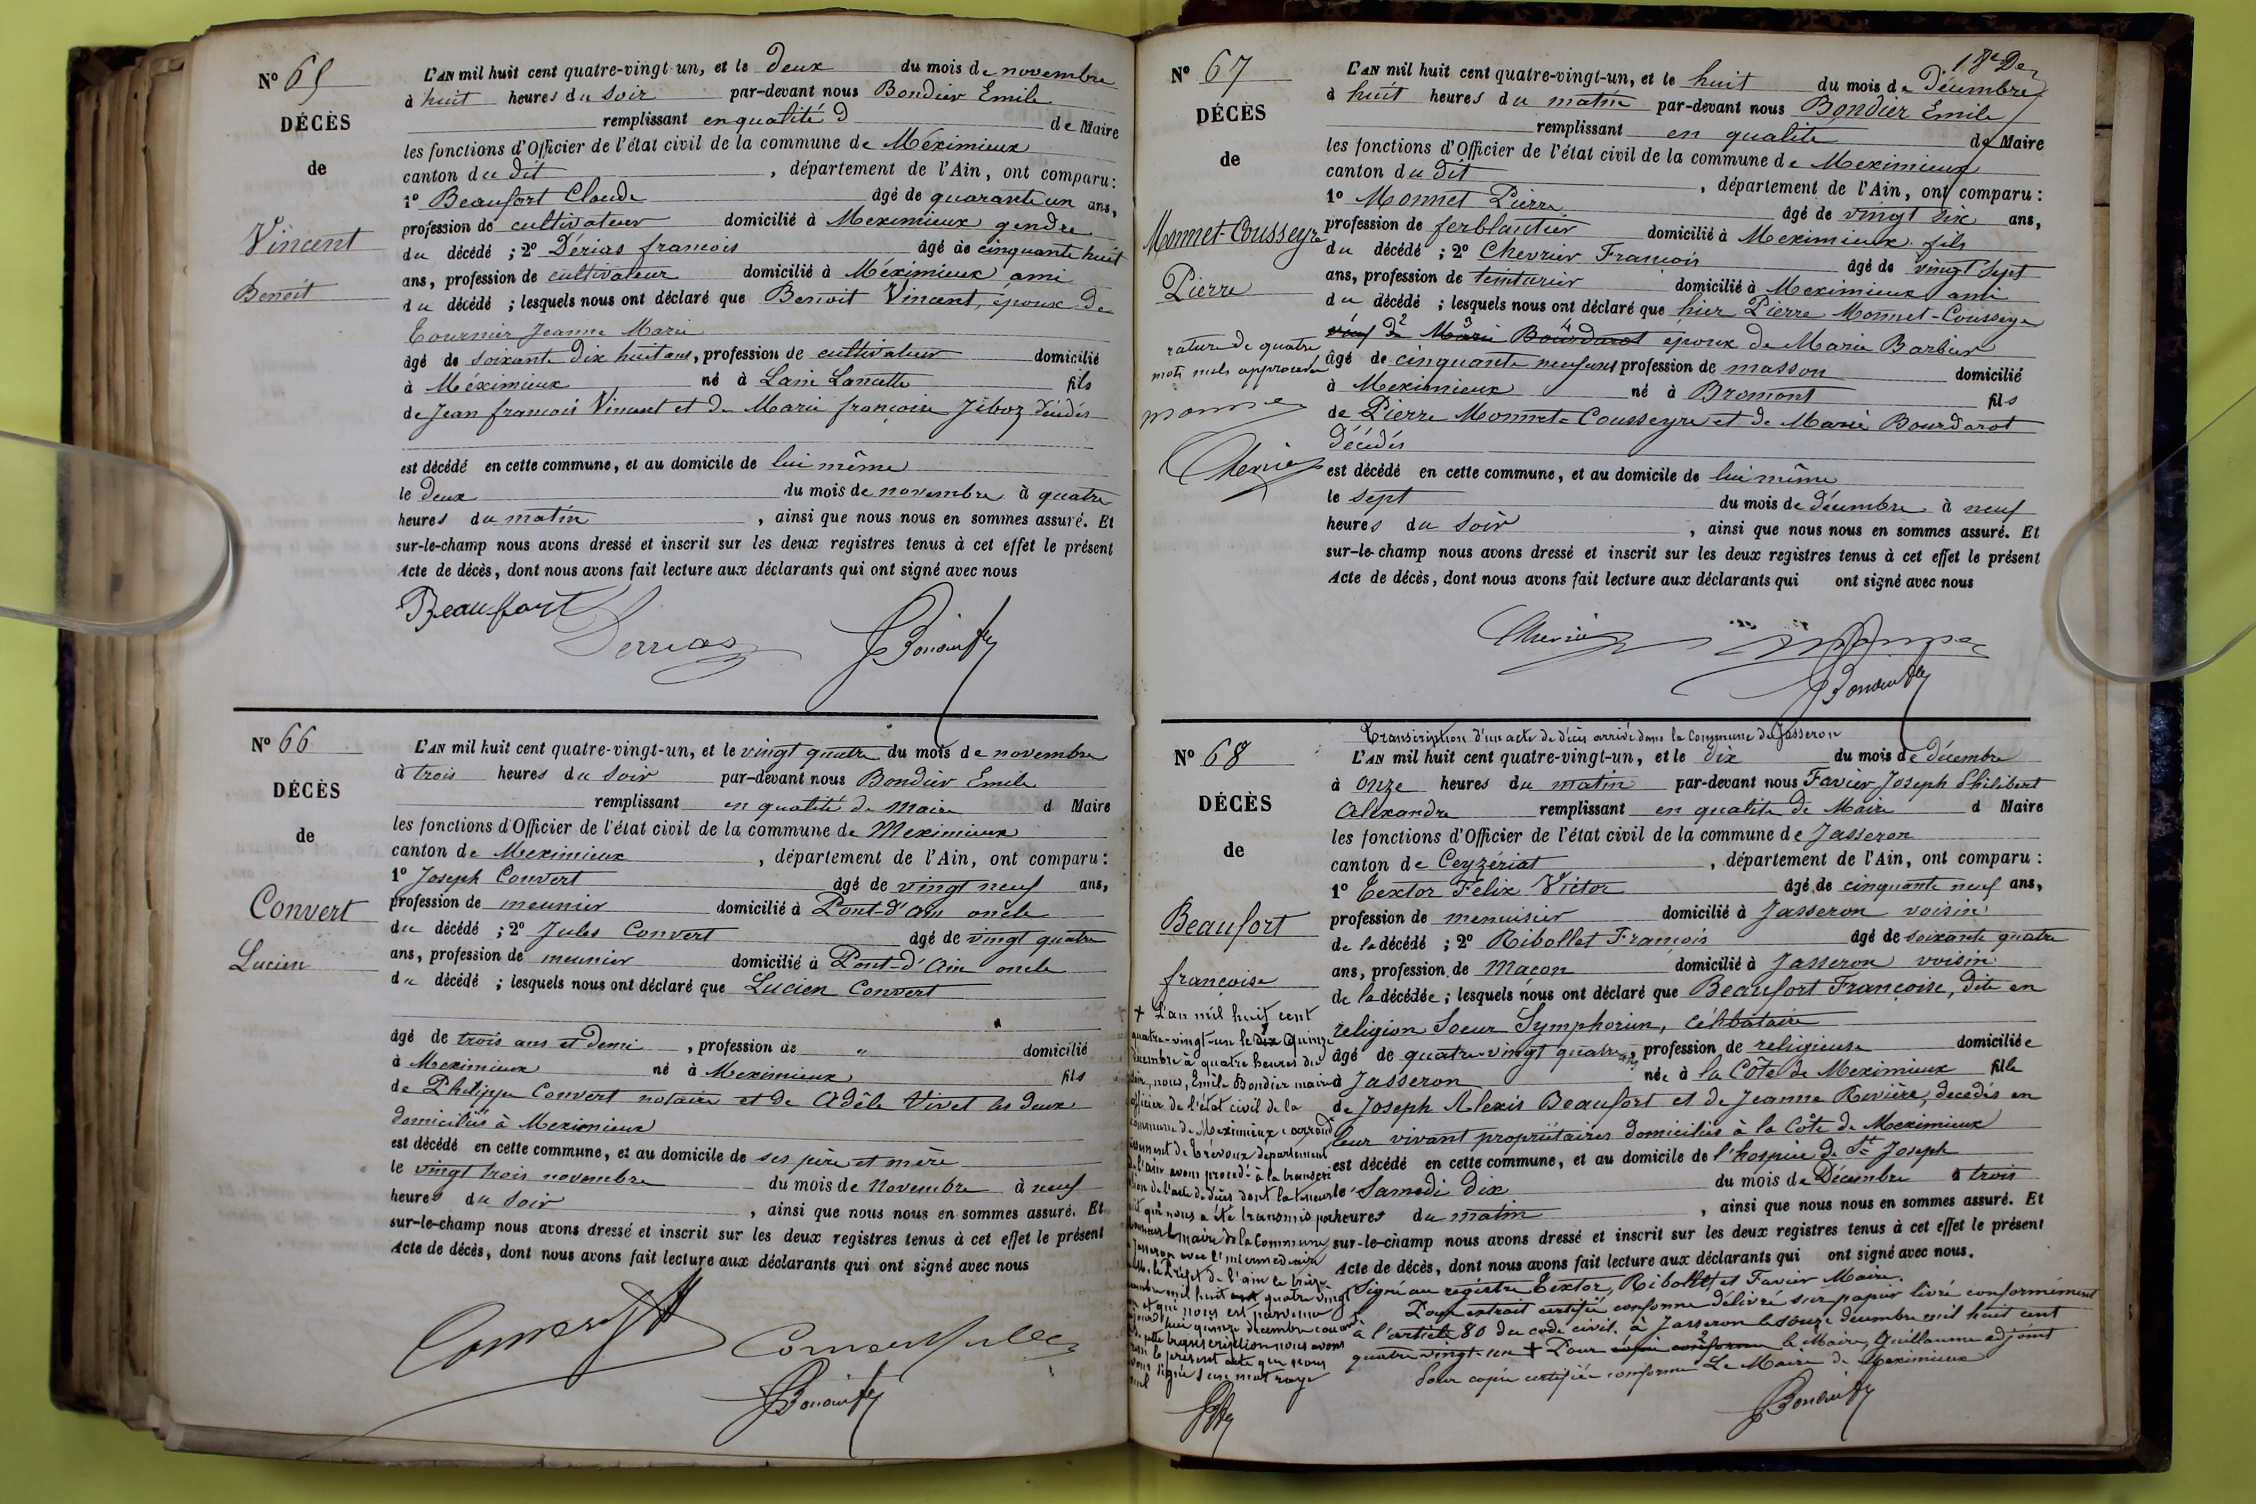 Nº 65
DÉCÈS
de
Vincent
Benoit
L'AN mil huit cent quatre-vingt un, et le deux du mois de novembre
à huit heures du soir par-devant nous Bondier Emile
remplissant en qualité d de Maire
les fonctions d'Officier de l'état civil de la commune de Méximieux
canton du dit , département de l'Ain, ont comparu:
1º Beaufort Claude âgé de quarante un ans,
profession de cultivateur domicilié à Meximieux gendre
du décédé ; 2º Dérias francois âgé de cinquante huit
ans, profession de cultivateur domicilié à Méximieux ami
du décédé ; lesquels nous ont déclaré que Benoit Vincent, époux de
Tournier Jeanne Marie
âgé de soixante dix huit ans, profession de cultivateur domicilié
à Méximieux né à Lain fils
de Jean francois Vincent et de Marie françoise décédés
est décédé en cette commune, et au domicile de lui même
le deux du mois de novembre à quatre
heures du matin , ainsi que nous nous en sommes assuré. Et
sur-le-champ nous avons dressé et inscrit sur les deux registres tenus à cet effet le présent
Acte de décès, dont nous avons fait lecture aux déclarants qui ont signé avec nous
Beaufort Derrias Bondier
Nº 66
DÉCÈS
de
Convert
Lucien
L'AN mil huit cent quatre-vingt-un, et le vingt quatre du mois de novembre
à trois heures du soir par-devant nous Bondier Emile
remplissant en qualité de Maire d Maire
les fonctions d'Officier de l'état civil de la commune de Meximieux
canton de Meximieux , département de l'Ain, ont comparu:
1º Joseph Convert âgé de vingt neuf ans,
profession de meunier domicilié à Pont-d'Ain oncle
du décédé ; 2º Jules Convert âgé de vingt quatre
ans, profession de meunier domicilié à Pont-d'Ain oncle
du décédé ; lesquels nous ont déclaré que Lucien Convert
âgé de trois ans et demi , profession de " domicilié
à Meximieux né à Meximieux fils
de Philippe Convert notaire et de Adèle Vivet les deux
domiciliés à Meximieux
est décédé en cette commune, et au domicile de ses père et mère
le vingt trois novembre du mois de Novembre à neuf
heures du soir , ainsi que nous nous en sommes assuré. Et
sur-le-champ nous avons dressé et inscrit sur les deux registres tenus à cet effet le présent
Acte de décès, dont nous avons fait lecture aux déclarants qui ont signé avec nous
Convert Convert Jules
Bondier
18e Der
Nº 67
DÉCÈS
de
Monnet-Cousseyre
Pierre
rature de quatre
mots nuls approuvée
Monnet
Chevrier
L'AN mil huit cent quatre-vingt-un, et le huit du mois de Décembre
à huit heures du matin par-devant nous Bondier Emile
remplissant en qualité de Maire
les fonctions d'Officier de l'état civil de la commune de Meximieux
canton du dit , département de l'Ain, ont comparu:
1º Monnet Pierre âgé de vingt six ans,
profession de ferblantier domicilié à Meximieux fils
du décédé ; 2º Chevrier François âgé de vingt sept
ans, profession de teinturier domicilié à Meximieux ami
du décédé ; lesquels nous ont déclaré que hier Pierre Monnet-Cousseyre
veuf de Marie Bourdarot époux de Marie Barbier
âgé de cinquante neuf ans profession de masson domicilié
à Meximieux né à Bromont fils
de Pierre Monnet-Cousseyre et de Marie Bourdarot
décédés
est décédé en cette commune, et au domicile de lui même
le sept du mois de Décembre à neuf
heures du soir , ainsi que nous nous en sommes assuré. Et
sur-le-champ nous avons dressé et inscrit sur les deux registres tenus à cet effet le présent
Acte de décès, dont nous avons fait lecture aux déclarants qui ont signé avec nous
Chevrier Monnet
Bondier
Transcription d'un acte de décès arrivé dans la Commune de Jasseron
Nº 68
DÉCÈS
de
Beaufort
françoise
L'AN mil huit cent quatre-vingt-un, et le dix du mois de décembre
à onze heures du matin par-devant nous Favier Joseph Philibert
Alexandre remplissant en qualité de Maire d Maire
les fonctions d'Officier de l'état civil de la commune de Jasseron
canton de Ceyzériat , département de l'Ain, ont comparu:
1º Textor Félix Victor âgé de cinquante neuf ans,
profession de menuisier domicilié à Jasseron voisin
de la décédé ; 2º Ribollet François âgé de soixante quatre
ans, profession de Maçon domicilié à Jasseron voisin
de la décédée ; lesquels nous ont déclaré que Beaufort Françoise, dite en
religion Soeur Symphorien, célibataire
âgé de quatre-vingt quatre ans, profession de religieuse domiciliée
à Jasseron née à la Côte de Meximieux fille
de Joseph Alexis Beaufort et de Jeanne Rivière, décédés en
leur vivant propriétaires domiciliés à la Côte de Meximieux
est décédé en cette commune, et au domicile de l'hospice de St Joseph
le Samedi dix du mois de Décembre à trois
heures du matin , ainsi que nous nous en sommes assuré. Et
sur-le-champ nous avons dressé et inscrit sur les deux registres tenus à cet effet le présent
Acte de décès, dont nous avons fait lecture aux déclarants qui ont signé avec nous.
Signé au registre Textor, Ribollet et Favier Maire.
Pour extrait certifié conforme délivré sur papier livré conformément
à l'article 80 du code civil. à Jasseron le douze décembre mil huit cent
quatre vingt-un + Pour copie conforme le Maire, Guillaume adjoint
Pour copie certifiée conforme Le Maire de Meximieux
Bondier
+ L'an mil huit cent
quatre-vingt-un le dix Quinze
Décembre à quatre heures du
soir, nous, Emile Bondier maire
officier de l'état civil de la
commune de Meximieux arrond
issement de Trévoux département
de l'ain avons procédé à la transcri
ption de l'acte de décès dont la teneur
suit qui nous a été transmis par
Monsieur le maire de la Commune
de Jasseron avec l'intermédiaire
de M. le Préfet de l'ain ce treize
décembre mil huit cent quatre vingt
un et qui nous est parvenu
aujourd'hui quinze décembre courant
cette transcription nous avons
le présent acte que nous
avons signé sans mot rayé
nul